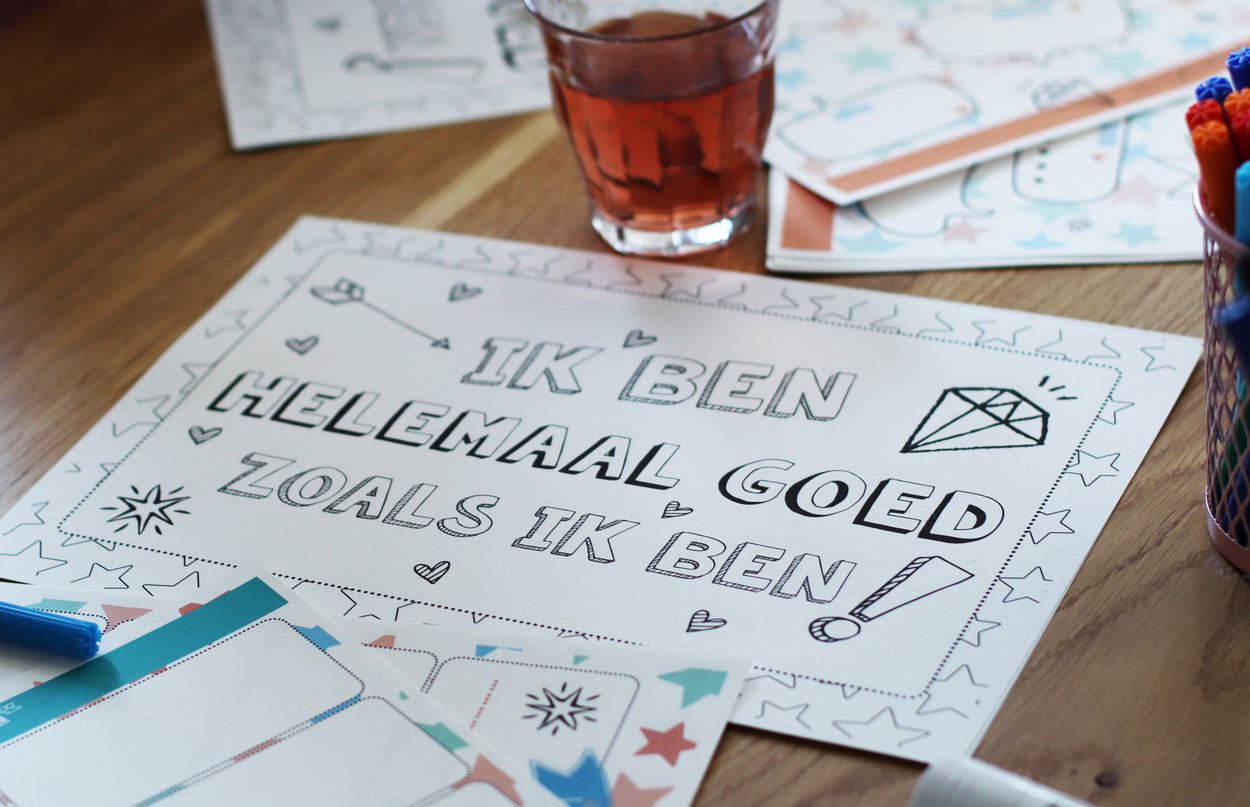 IK BEN
HELEMAAL GOED
ZOALS IK BEN!